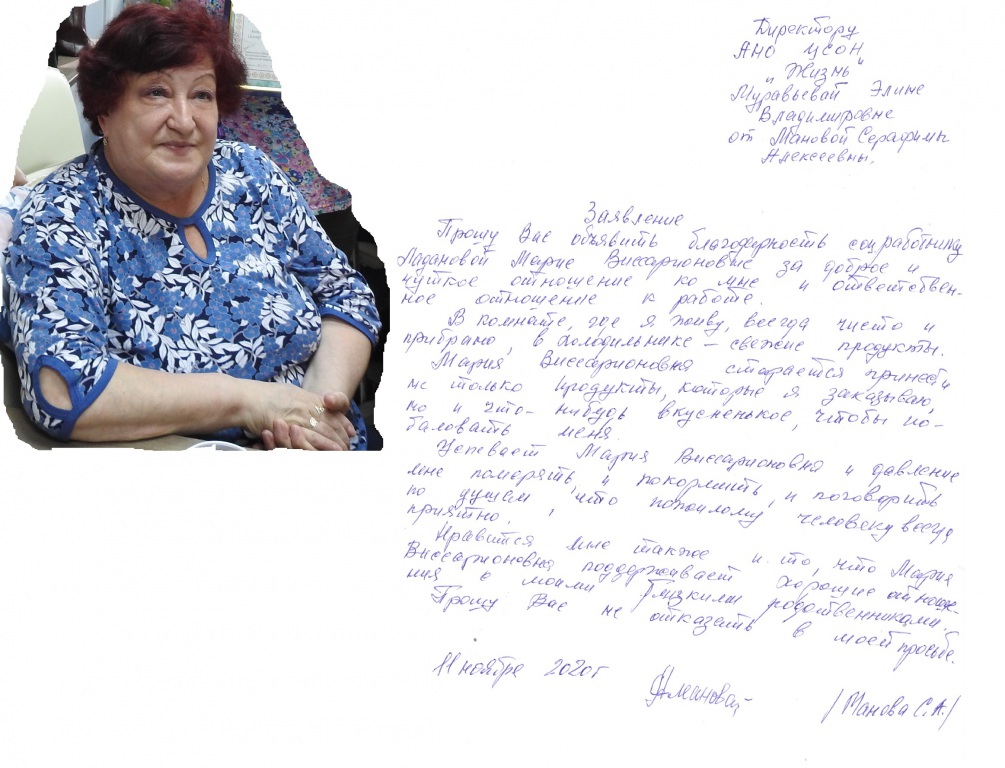 Директору
АНО ЦСОН
"Жизнь"
Муравьевай Элине
Владимировне
от Мановой Серафимы
Алексеевны.
Заявление
Прошу Вас объявить благодарность соцработнику
Ладановой Марие Виссарионовне за доброе и
чуткое отношение ко мне и ответствен-
ное отношение к работе.
В комнате, где я живу, всегда чисто и
прибрано, в холодильнике – свежие продукты.
Мария Виссарионовна старается принести
не только продукты, которые я заказываю,
но и что-нибудь вкусненькое, чтобы по-
баловать меня.
Успевает Мария Виссарионовна и давление
мне померять, и покормить, и поговорить
по душам, что пожилому человеку всегда
приятно.
Нравится мне также и то, что Мария
Виссарионовна поддерживает хорошие отноше-
ния с моими близкими родственниками.
Прошу Вас не отказать в моей просьбе.
11 ноября 2020г
/Манова С.А./